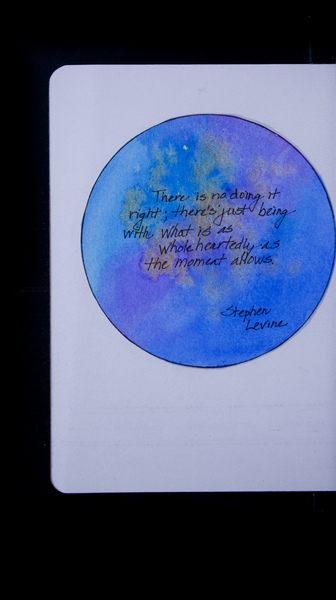 There is no doing it
right; there's just being
with what is as
wholeheartedly as
the moment allows.
Stephen
Levine